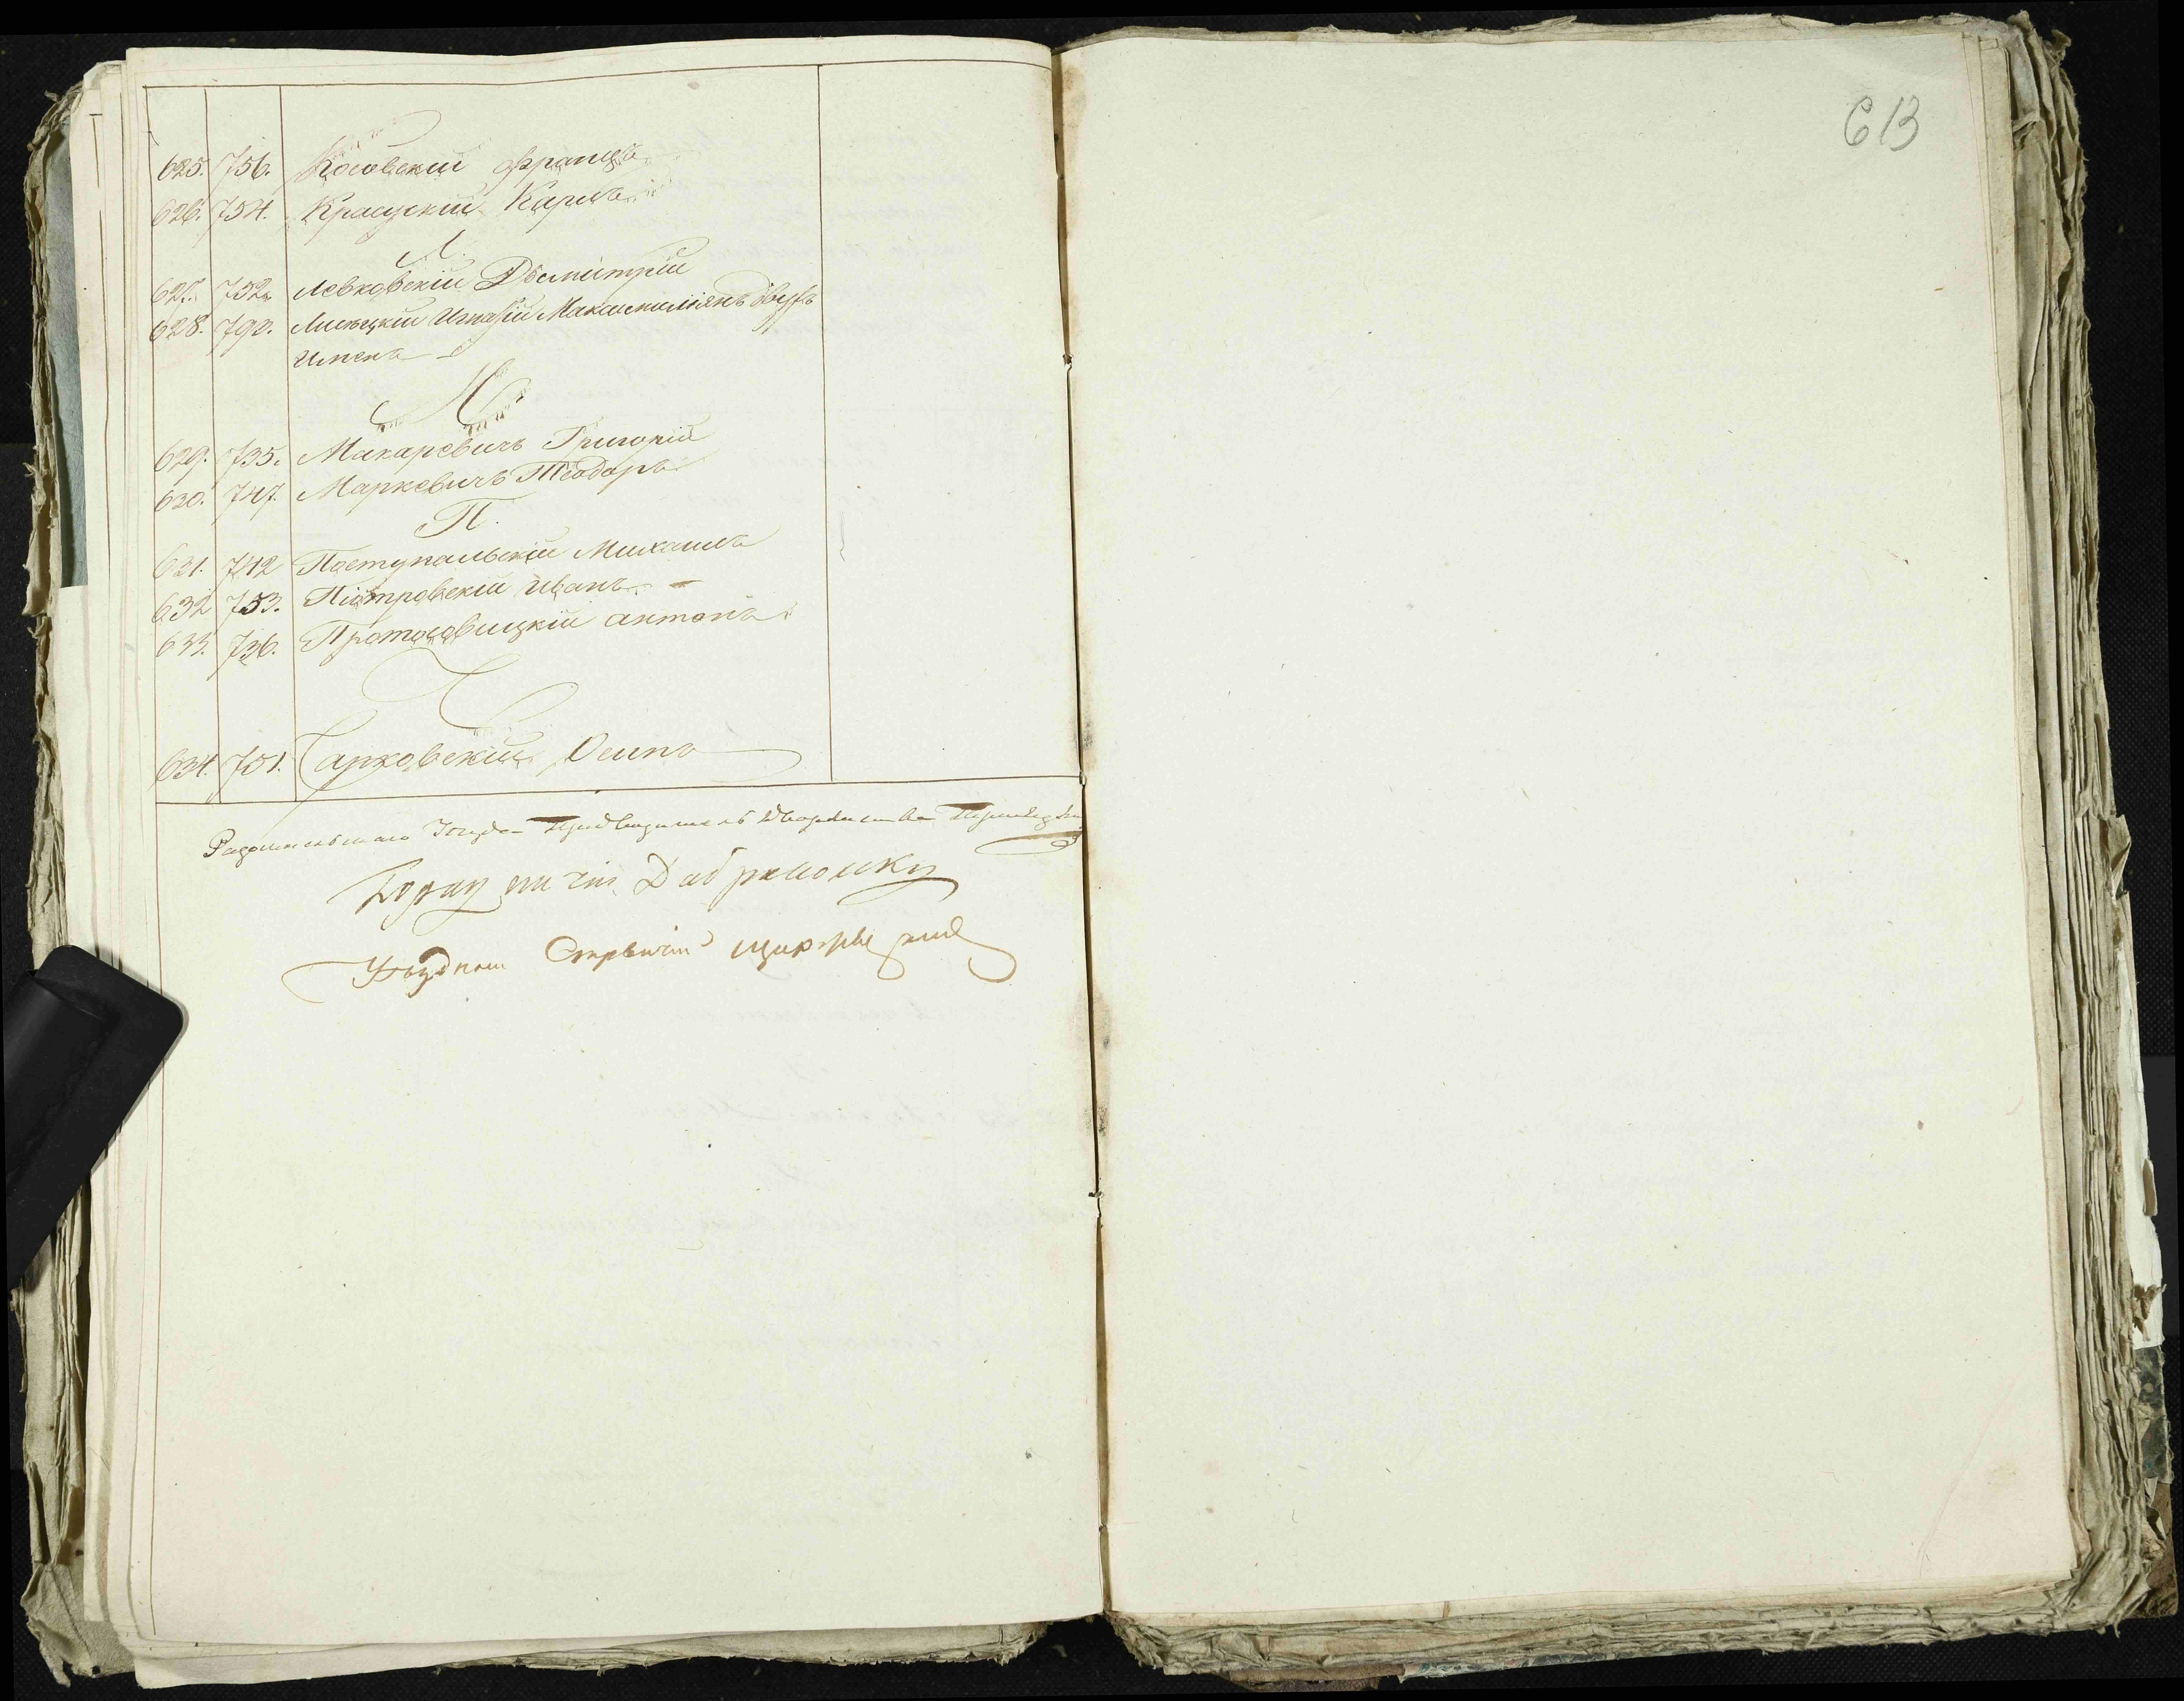 613
625. 756. Косовскій Францъ
626. 754. Красускій Карлъ
Л.
627. 752. Левковскій Дымитрій
628. 792. Лисецкій Игнатій Максимиліянъ двухъ
именъ
М
629. 735. Макаревичъ Григорій
630. 747. Маркевичъ Теодоръ
П.
631. 742 Поступальскій Михаилъ
632 753. Піотровскій Иванъ
633. 736. Протасовицкій Антонъ
Т
634. 751. Тарковскій Осипъ
Радомысльскаго Уезда Предводитель Дворянства
Уездный Стряпчій